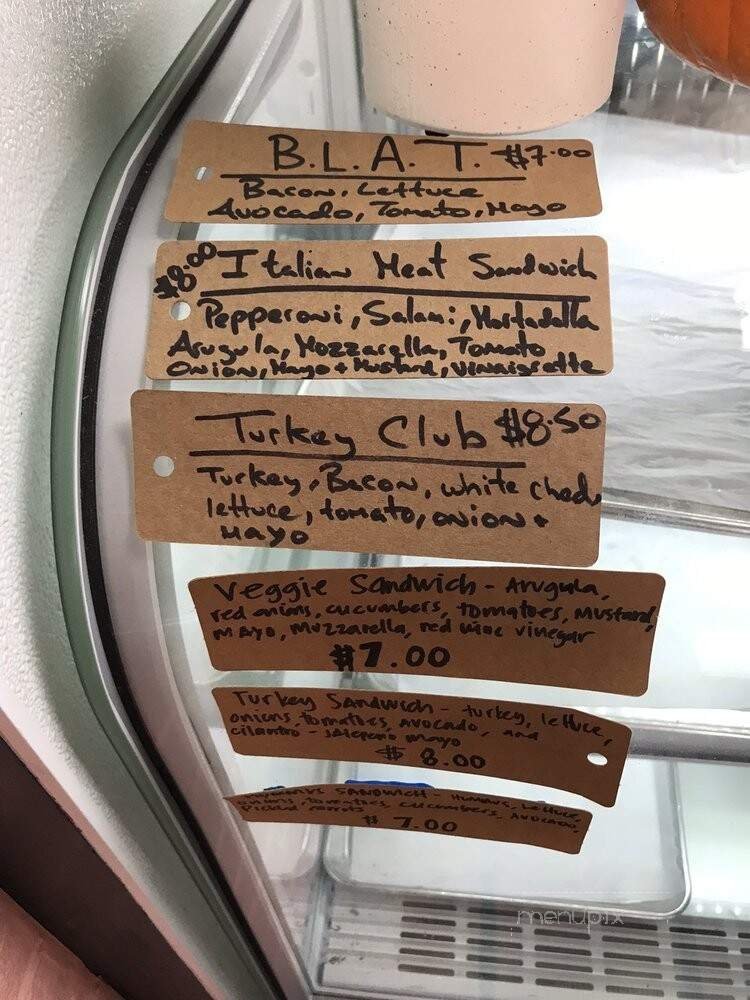 B.L.A.T. $7.00
Bacon, Lettuce
Avocado, Tomato, Mayo
$8.00 Italian Meat Sandwich
Pepperoni, Salami, Mortadella
Arugula, Mozzarella, Tomato
Onion, Mayo + Mustard, Vinaigrette
Turkey Club $8.50
Turkey, Bacon, white ched
lettuce, tomato, onion +
Mayo
Veggie Sandwich - Arugula,
red onions, cucumbers, tomatoes, mustard,
mayo, mozzarella, red wine vinegar
$7.00
Turkey Sandwich - turkey, lettuce,
onions, tomatoes, avocado, and
cilantro - jalepeno mayo
$8.00
SANDWICH - Hummus, Lettuce,
onions, tomatoes, cucumbers, avocado,
pickled carrots
$7.00
menupix